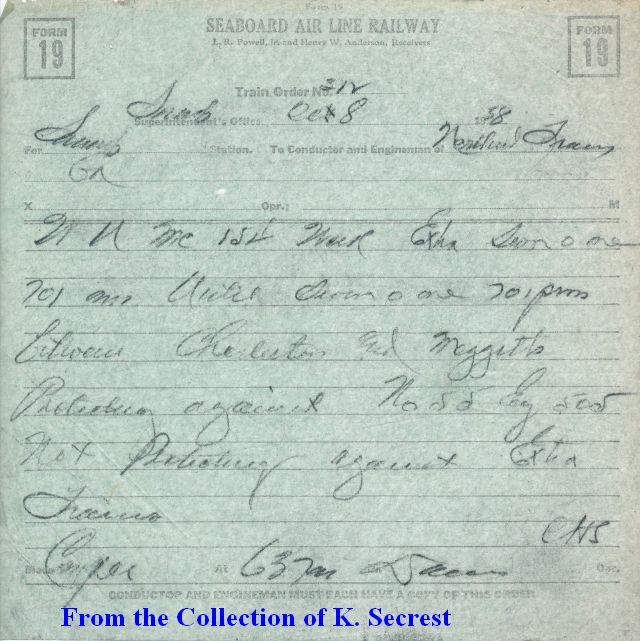 Form 19
SEABOARD AIR LINE RAILWAY
L. R. Powell, Jr. and Henry W. Anderson, Receivers
FORM 19
FORM 19
Train Order No. 312
Superintendent's Office Oct 8 1938
For Station. To Conductor and Engineman of Northbound Trains
X Opr.; M
154 Work Extra Seven 0 one
701 am Until Seven 0 one 701 pm
Between Charleston and Meggetts
Protecting against No 55 Eng 505
Not Protecting against Extra
Trains
CHS
Made At 637 Opr.
CONDUCTOR AND ENGINEMAN MUST EACH HAVE A COPY OF THIS ORDER
From the Collection of K. Secrest